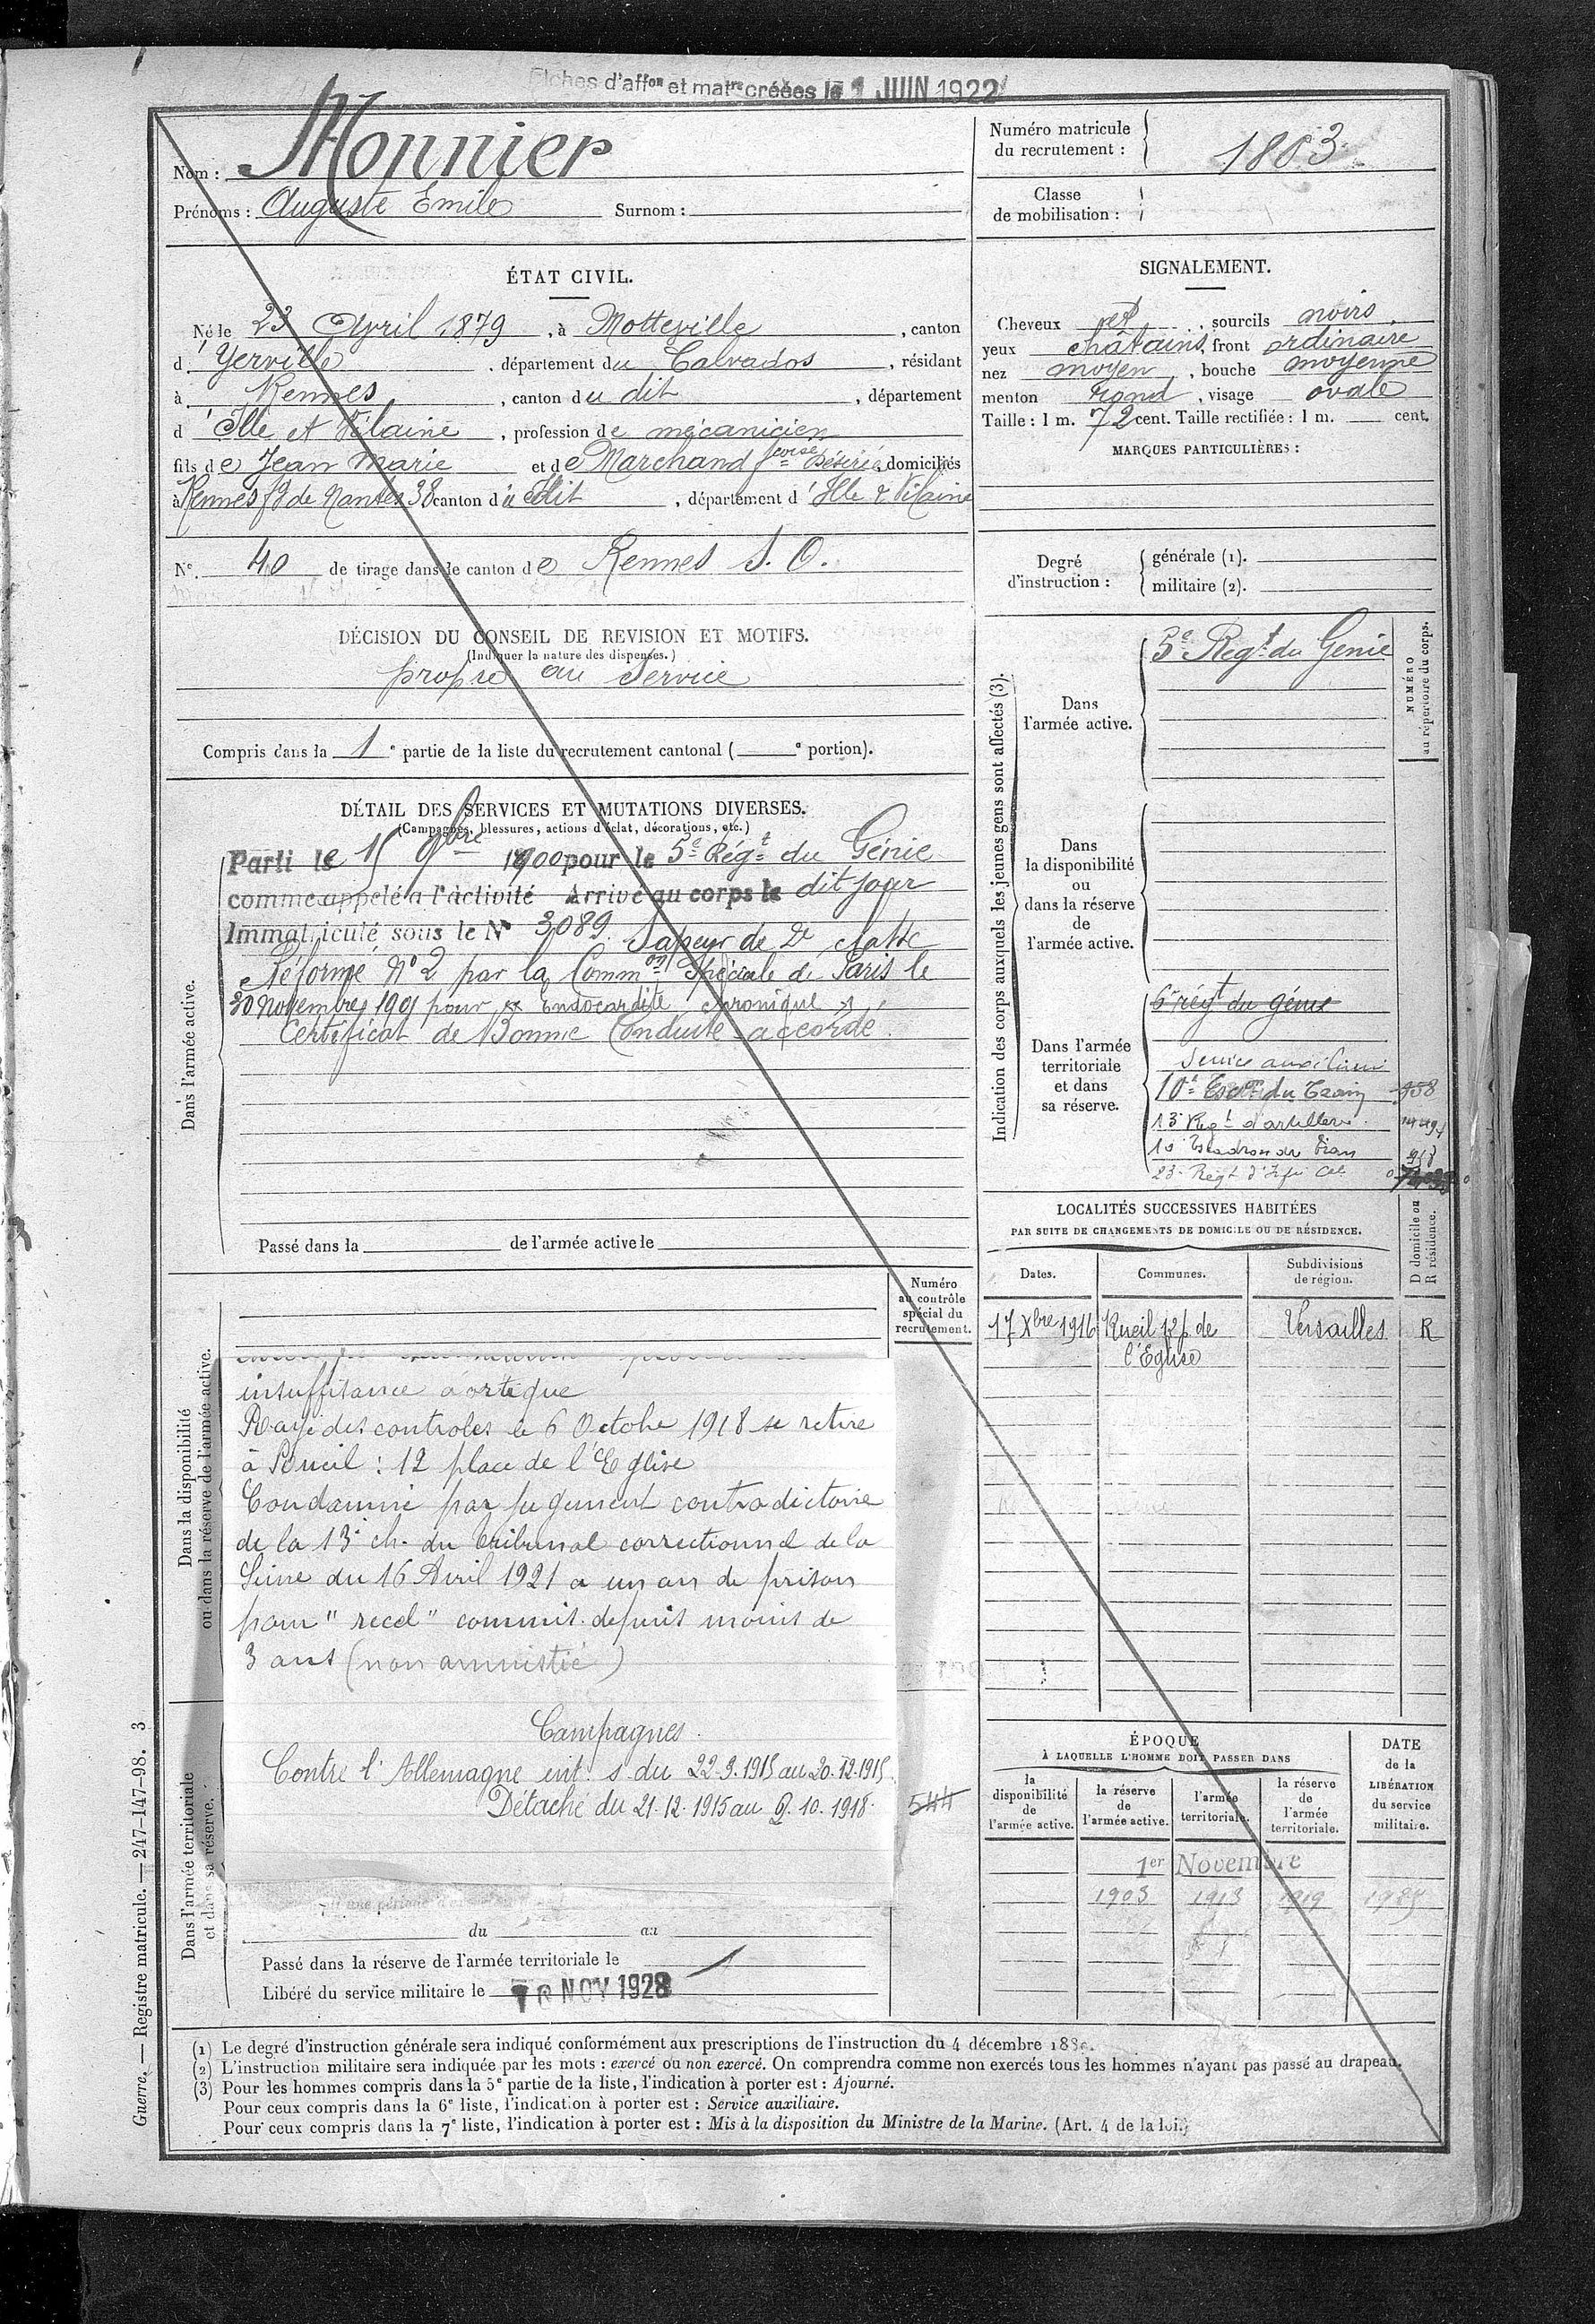 Fiches d'affon et matre créées le 1 JUIN 1922
Nom : Monnier
Prénoms : Auguste Emile Surnom :
Numéro matricule du recrutement : 1803
Classe de mobilisation :
ÉTAT CIVIL.
Né le 23 Avril 1879, à Motteville, canton
d'Yerville, département du Calvados, résidant
à Rennes, canton du dit, département
d'Ille et Vilaine, profession de mécanicien
fils de Jean Marie et de Marchand Désirée, domiciliés
à Rennes fg de Nantes 38 canton du dit, département d'Ille & Vilaine
N° 40 de tirage dans le canton de Rennes S. O.
SIGNALEMENT.
Cheveux et, sourcils noirs
yeux châtains, front ordinaire
nez moyen, bouche moyenne
menton rond, visage ovale
Taille : 1 m. 72 cent. Taille rectifiée : 1 m. cent.
MARQUES PARTICULIÈRES :
Degré d'instruction :
générale (1).
militaire (2).
DÉCISION DU CONSEIL DE REVISION ET MOTIFS.
(Indiquer la nature des dispenses.)
propre au Service
Compris dans la 1e partie de la liste du recrutement cantonal ( e portion).
DÉTAIL DES SERVICES ET MUTATIONS DIVERSES.
(Campagnes, blessures, actions d'éclat, décorations, etc.)
Dans l'armée active.
Parti le 15 9bre 1900 pour le 5e Régt du Génie
comme appelé à l'activité Arrivé au corps le dit jour
Immatriculé sous le N° 3089. Sapeur de 2e classe
Réformé N° 2 par la Common Spéciale de Paris le
20 Novembre 1901 pour Endocardite chronique
Certificat de Bonne Conduite accordé.
Passé dans la de l'armée active le
Indication des corps auxquels les jeunes gens sont affectés (3).
NUMÉRO au répertoire du corps.
Dans l'armée active.
5e Regt du Génie
Dans la disponibilité ou dans la réserve de l'armée active.
Dans l'armée territoriale et dans sa réserve.
6e régt du génie
Service auxiliaire
10e Escon du Train 958
13e Regt d'artillerie
10 Escadron du Train 958
23e Regt d'Infie Cale
LOCALITÉS SUCCESSIVES HABITÉES
PAR SUITE DE CHANGEMENTS DE DOMICILE OU DE RÉSIDENCE.
Dates.
Communes.
Subdivisions de région.
D domicile ou R résidence.
17 Xbre 1916 Rueil 12 p. de l'Eglise Versailles R
Numéro au contrôle spécial du recrutement.
Dans la disponibilité ou dans la réserve de l'armée active.
insuffisance aortique
Rayé des controles le 6 Octobre 1918 se retire
à Rueil : 12 place de l'Eglise
Condamné par jugement contradictoire
de la 13e ch. du tribunal correctionnel de la
Seine du 16 Avril 1921 a un an de prison
pour "recel" commis depuis moins de
3 ans (non amnistié)
Campagnes.
Contre l'Allemagne int. s du 22-3.1915 au 20.12.1915.
Détaché du 21.12.1915 au 6.10.1918.
544
Dans l'armée territoriale et dans sa réserve.
du au
Passé dans la réserve de l'armée territoriale le
Libéré du service militaire le NOV 1928
ÉPOQUE
À LAQUELLE L'HOMME DOIT PASSER DANS
la disponibilité de l'armée active.
la réserve de l'armée active.
l'armée territoriale.
la réserve de l'armée territoriale.
DATE de la LIBÉRATION du service militaire.
1er Novembre
1903 1913 1919
(1) Le degré d'instruction générale sera indiqué conformément aux prescriptions de l'instruction du 4 décembre
(2) L'instruction militaire sera indiquée par les mots : exercé ou non exercé. On comprendra comme non exercés tous les hommes n'ayant pas passé au drapeau.
(3) Pour les hommes compris dans la 5e partie de la liste, l'indication à porter est : Ajourné.
Pour ceux compris dans la 6e liste, l'indication à porter est : Service auxiliaire.
Pour ceux compris dans la 7e liste, l'indication à porter est : Mis à la disposition du Ministre de la Marine. (Art. 4 de la loi.)
Guerre. — Registre matricule. — 247-147-98. 3